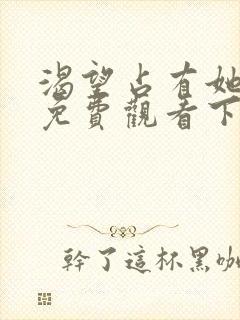 渴望占有她
免費觀看下
幹了這杯黑咖